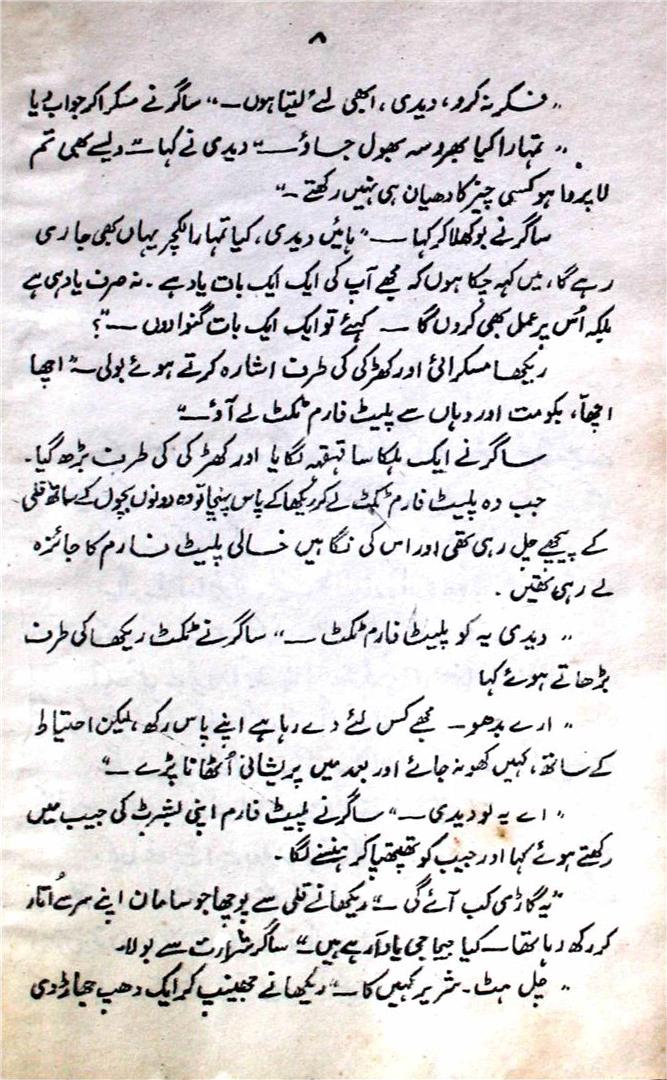 ۸
” فکر نہ کرو، دیدی، ابھی لئے لیتا ہوں۔“ ساگر نے مسکرا کر جواب دیا
” تمہارا کیا بھروسہ بھول جاؤ۔“ دیدی نے کہا۔” ویسے بھی تم
لاپروا ہو کسی چیز کا دھیان ہی نہیں رکھتے۔“
ساگر نے بوکھلا کر کہا ۔” ہائیں دیدی، کیا تمہارا لکچر یہاں بھی جاری
رہے گا، میں کہہ چکا ہوں کہ مجھے آپ کی ایک ایک بات یاد ہے۔ نہ صرف یاد ہی ہے
بلکہ اُس پر عمل بھی کروں گا ۔ کہئے تو ایک ایک بات گنوا دوں ۔“؟
ریکھا مسکرائی اور کھڑکی کی طرف اشارہ کرتے ہوئے بولی۔” اچھا
اچھا، بکو مت اور وہاں سے پلیٹ فارم ٹکٹ لے آؤ۔“
ساگر نے ایک ہلکا سا قہقہہ لگایا اور کھڑکی کی طرف بڑھ گیا۔
جب وہ پلیٹ فارم ٹکٹ لے کر ریکھا کے پاس پہنچا تو وہ دونوں بچوں کے ساتھ قلی
کے پیچھے چل رہی تھی اور اس کی نگاہیں خالی پلیٹ فارم کا جائزہ
لے رہی تھیں۔
” دیدی یہ لو پلیٹ فارم ٹکٹ ۔“ ساگر نے ٹکٹ ریکھا کی طرف
بڑھاتے ہوئے کہا
” ارے بدھو۔ مجھے کس لئے دے رہا ہے اپنے پاس رکھ، لیکن احتیاط
کے ساتھ، کہیں کھو نہ جائے اور بعد میں پریشانی اُٹھانا پڑے ۔“
” اے یہ لو دیدی ۔“ ساگر نے پلیٹ فارم اپنی بشرٹ کی جیب میں
رکھتے ہوئے کہا اور جیب کو تھپتھپا کر ہنسنے لگا۔
” یہ گاڑی کب آئے گی ۔“ ریکھا نے قلی سے پوچھا جو سامان اپنے سر سے اُتار
کر رکھ رہا تھا۔ کیا جیجا جی یاد آ رہے ہیں۔“ ساگر شرارت سے بولا۔
” چل ہٹ۔ شریر کہیں کا۔“ ریکھا نے جھینپ کر ایک دھپ جھاڑ دی